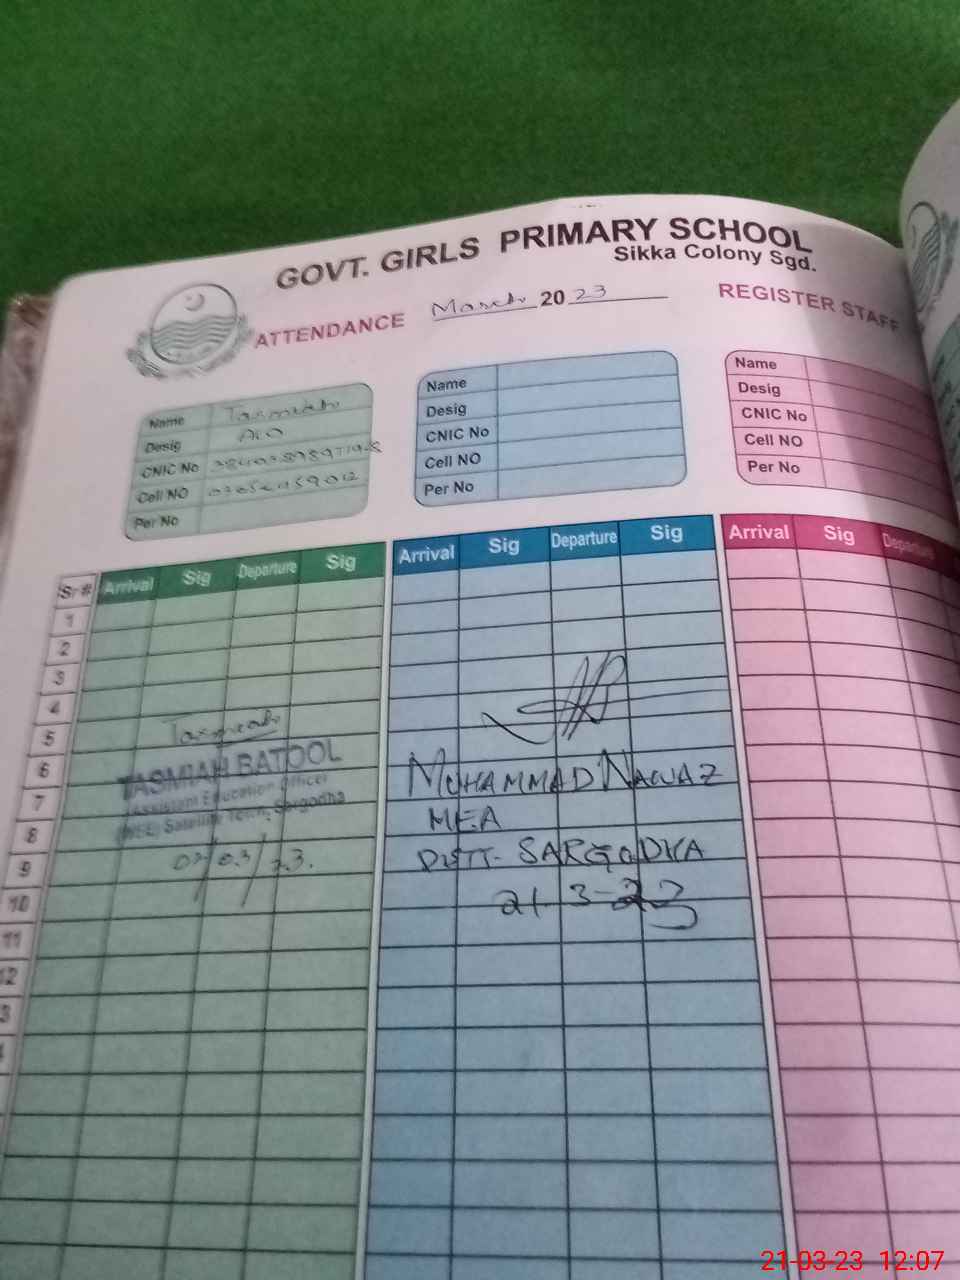 GOVT. GIRLS PRIMARY SCHOOL
Sikka Colony Sgd.
ATTENDANCE March 2023 REGISTER STAFF
Name Tasmiah
Desig AEO
CNIC No
Cell NO
Per No
Name
Desig
CNIC No
Cell NO
Per No
Name
Desig
CNIC No
Cell NO
Per No
Sr# Arrival Sig Departure Sig
Arrival Sig Departure Sig
Arrival Sig Departure
1
2
3
4
5
6
7
8
9
10
11
12
Tasmiah
TASMIAH BATOOL
Assistant Education Officer
(WEE) Satellite Town, Sargodha
MUHAMMAD NAWAZ
MEA
DISTT. SARGODHA
21-3-23
21-03-23 12:07